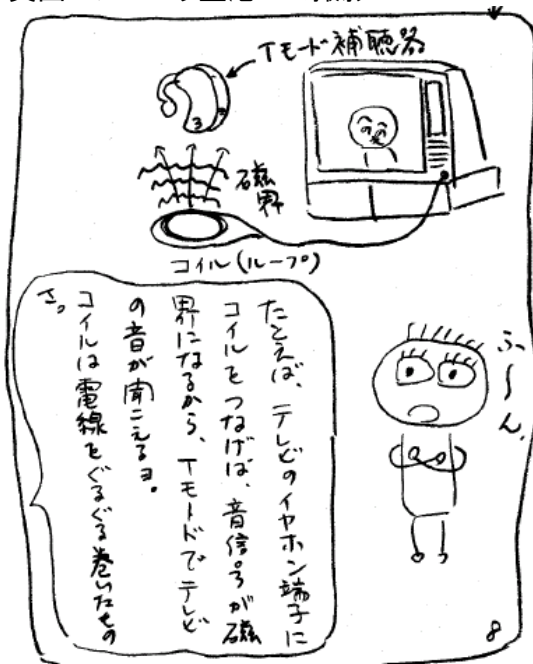 Tモード補聴器
磁界
コイル(ループ)
ふ〜ん、
たとえば、テレビのイヤホン端子に
コイルをつなげば、音信号が磁
界になるから、Tモードでテレビ
の音が聞こえるヨ。
コイルは電線をぐるぐる巻いたもの
さ。
8